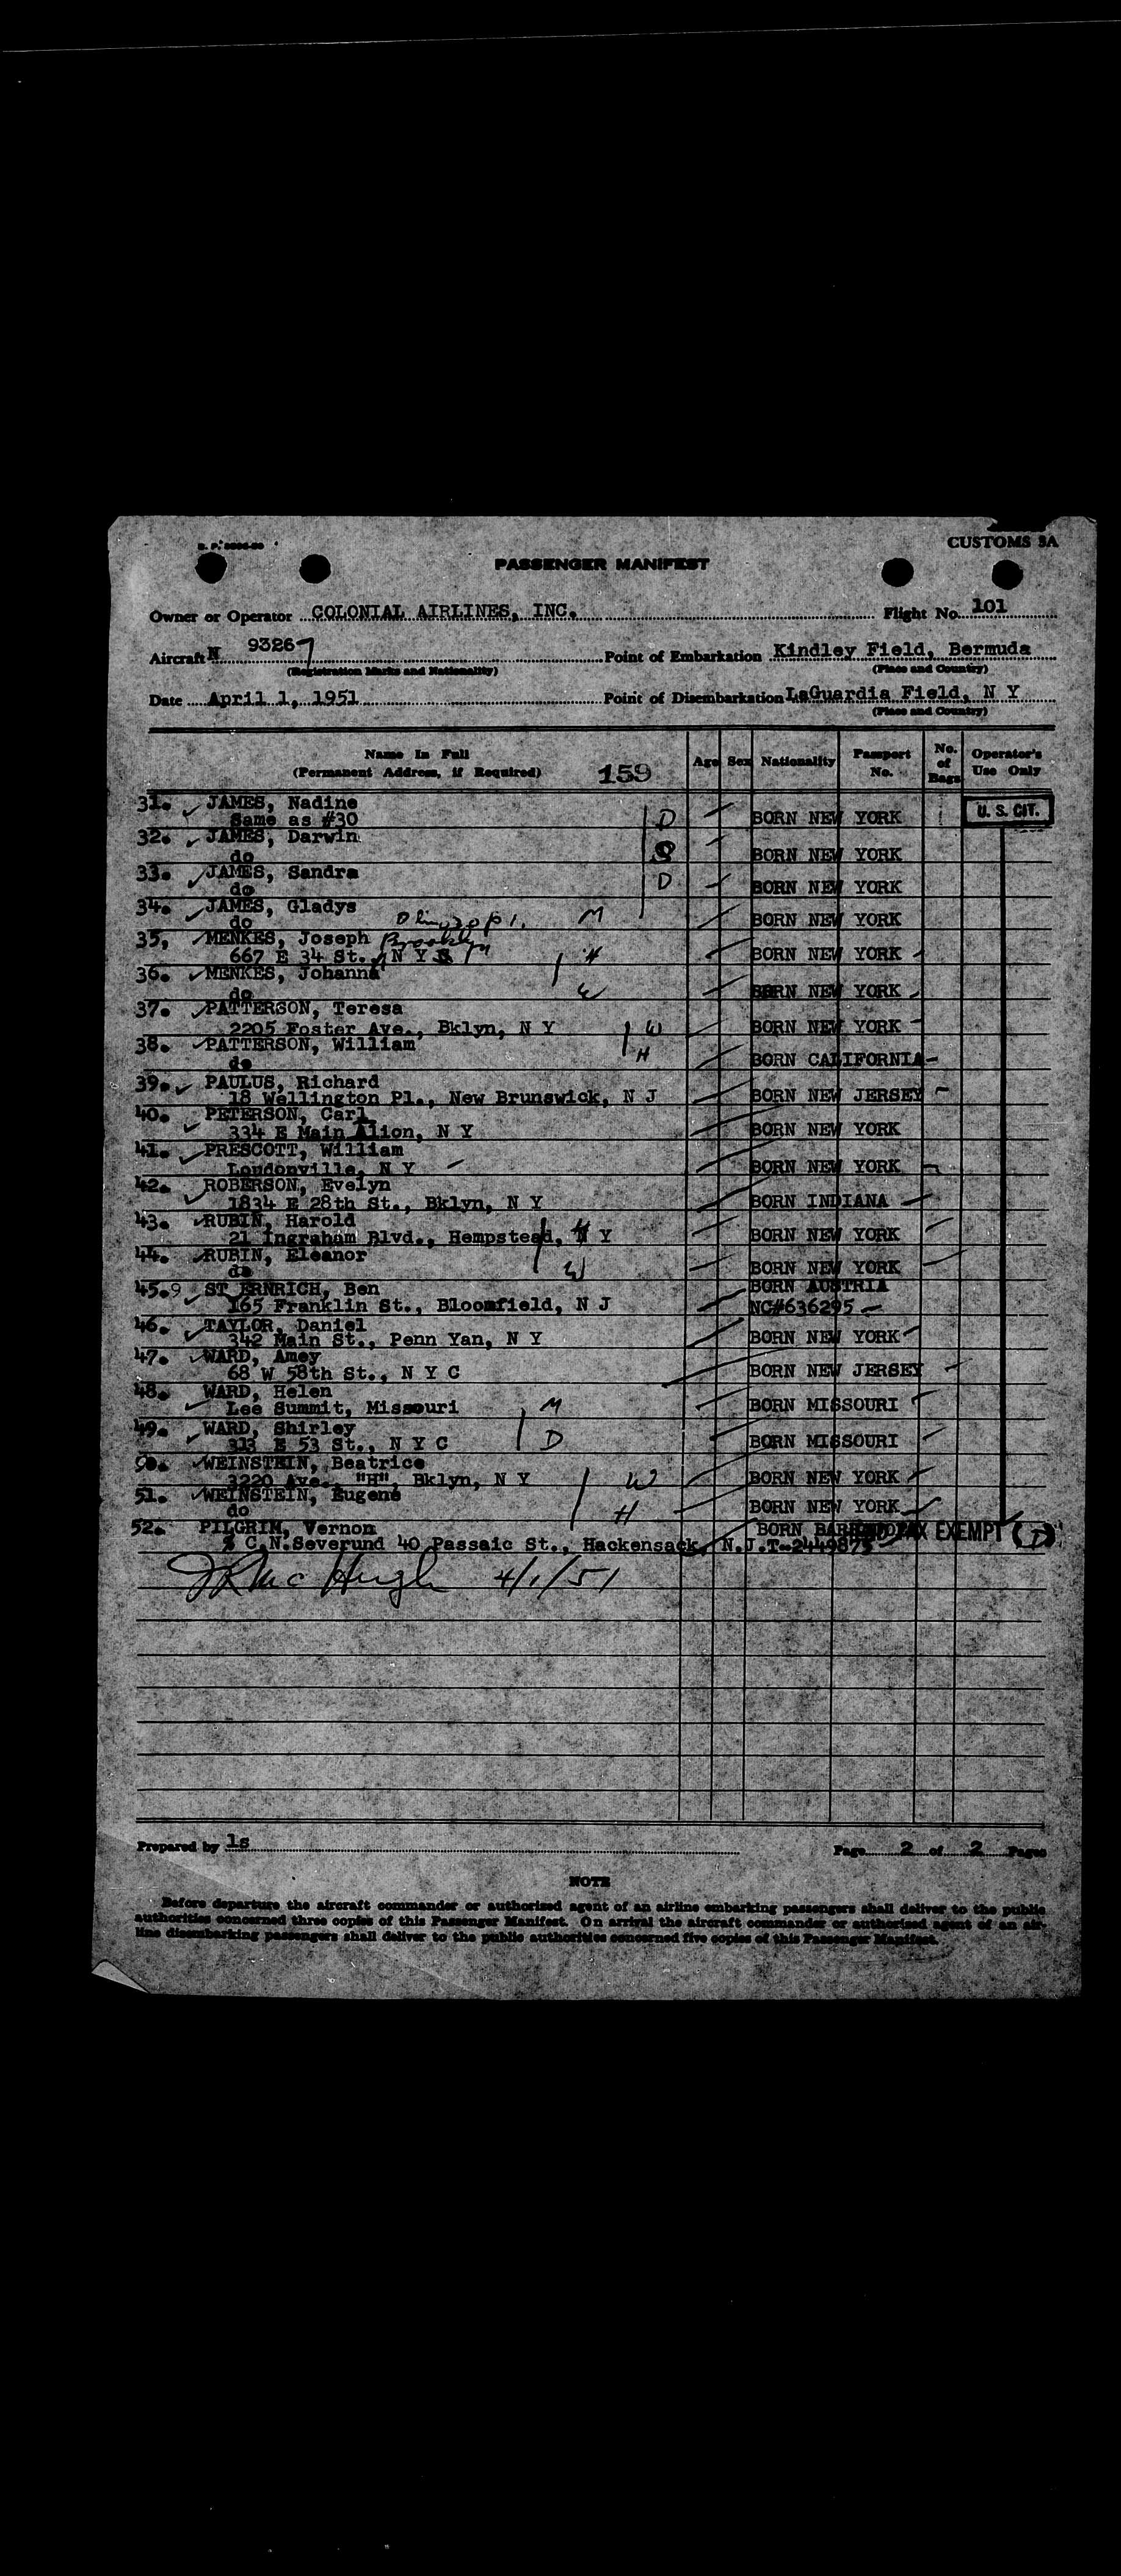 CUSTOMS 3A
PASSENGER MANIFEST
Owner or Operator COLONIAL AIRLINES, INC. Flight No. 101
Aircraft N 93267 Point of Embarkation Kindley Field, Bermuda
(Registration Marks and Nationality) (Place and Country)
Date April 1, 1951 Point of Disembarkation LaGuardia Field, N Y
(Place and Country)
Name In Full Age Sex Nationality Passport No. No. of Bags Operator's Use Only
(Permanent Address, if Required) 159
31. JAMES, Nadine
Same as #30 D BORN NEW YORK U. S. CIT.
32. JAMES, Darwin
do S BORN NEW YORK
33. JAMES, Sandra
do D BORN NEW YORK
34. JAMES, Gladys
do M BORN NEW YORK
35, MENKES, Joseph Brooklyn
667 E 34 St., N Y H BORN NEW YORK
36. MENKES, Johanna
do W BORN NEW YORK
37. PATTERSON, Teresa
2205 Foster Ave., Bklyn, N Y W BORN NEW YORK
38. PATTERSON, William
do H BORN CALIFORNIA
39. PAULUS, Richard
18 Wellington Pl., New Brunswick, N J BORN NEW JERSEY
40. PETERSON, Carl
334 E Main Alion, N Y BORN NEW YORK
41. PRESCOTT, William
Loudonville, N Y BORN NEW YORK
42. ROBERSON, Evelyn
1834 E 28th St., Bklyn, N Y BORN INDIANA
43. RUBIN, Harold
21 Ingraham Blvd., Hempstead, N Y H BORN NEW YORK
44. RUBIN, Eleanor
do W BORN NEW YORK
45. 9 ST ERNRICH, Ben BORN AUSTRIA
165 Franklin St., Bloomfield, N J NC#636295
46. TAYLOR, Daniel
342 Main St., Penn Yan, N Y BORN NEW YORK
47. WARD, Amey
68 W 58th St., N Y C BORN NEW JERSEY
48. WARD, Helen
Lee Summit, Missouri M BORN MISSOURI
49. WARD, Shirley
313 E 53 St., N Y C D BORN MISSOURI
50. WEINSTEIN, Beatrice
3220 Ave., "H", Bklyn, N Y W BORN NEW YORK
51. WEINSTEIN, Eugene
do H BORN NEW YORK
52. PILGRIM, Vernon BORN TAX EXEMPT (D)
% C.N.Severund 40 Passaic St., Hackensack, N.J. T-2449875
J R McHugh 4/1/51
Prepared by ls Page 2 of 2 Pages
NOTE
Before departure the aircraft commander or authorized agent of an airline embarking passengers shall deliver to the public
authorities concerned three copies of this Passenger Manifest. On arrival the aircraft commander or authorized agent of an air-
line disembarking passengers shall deliver to the public authorities concerned five copies of this Passenger Manifest.